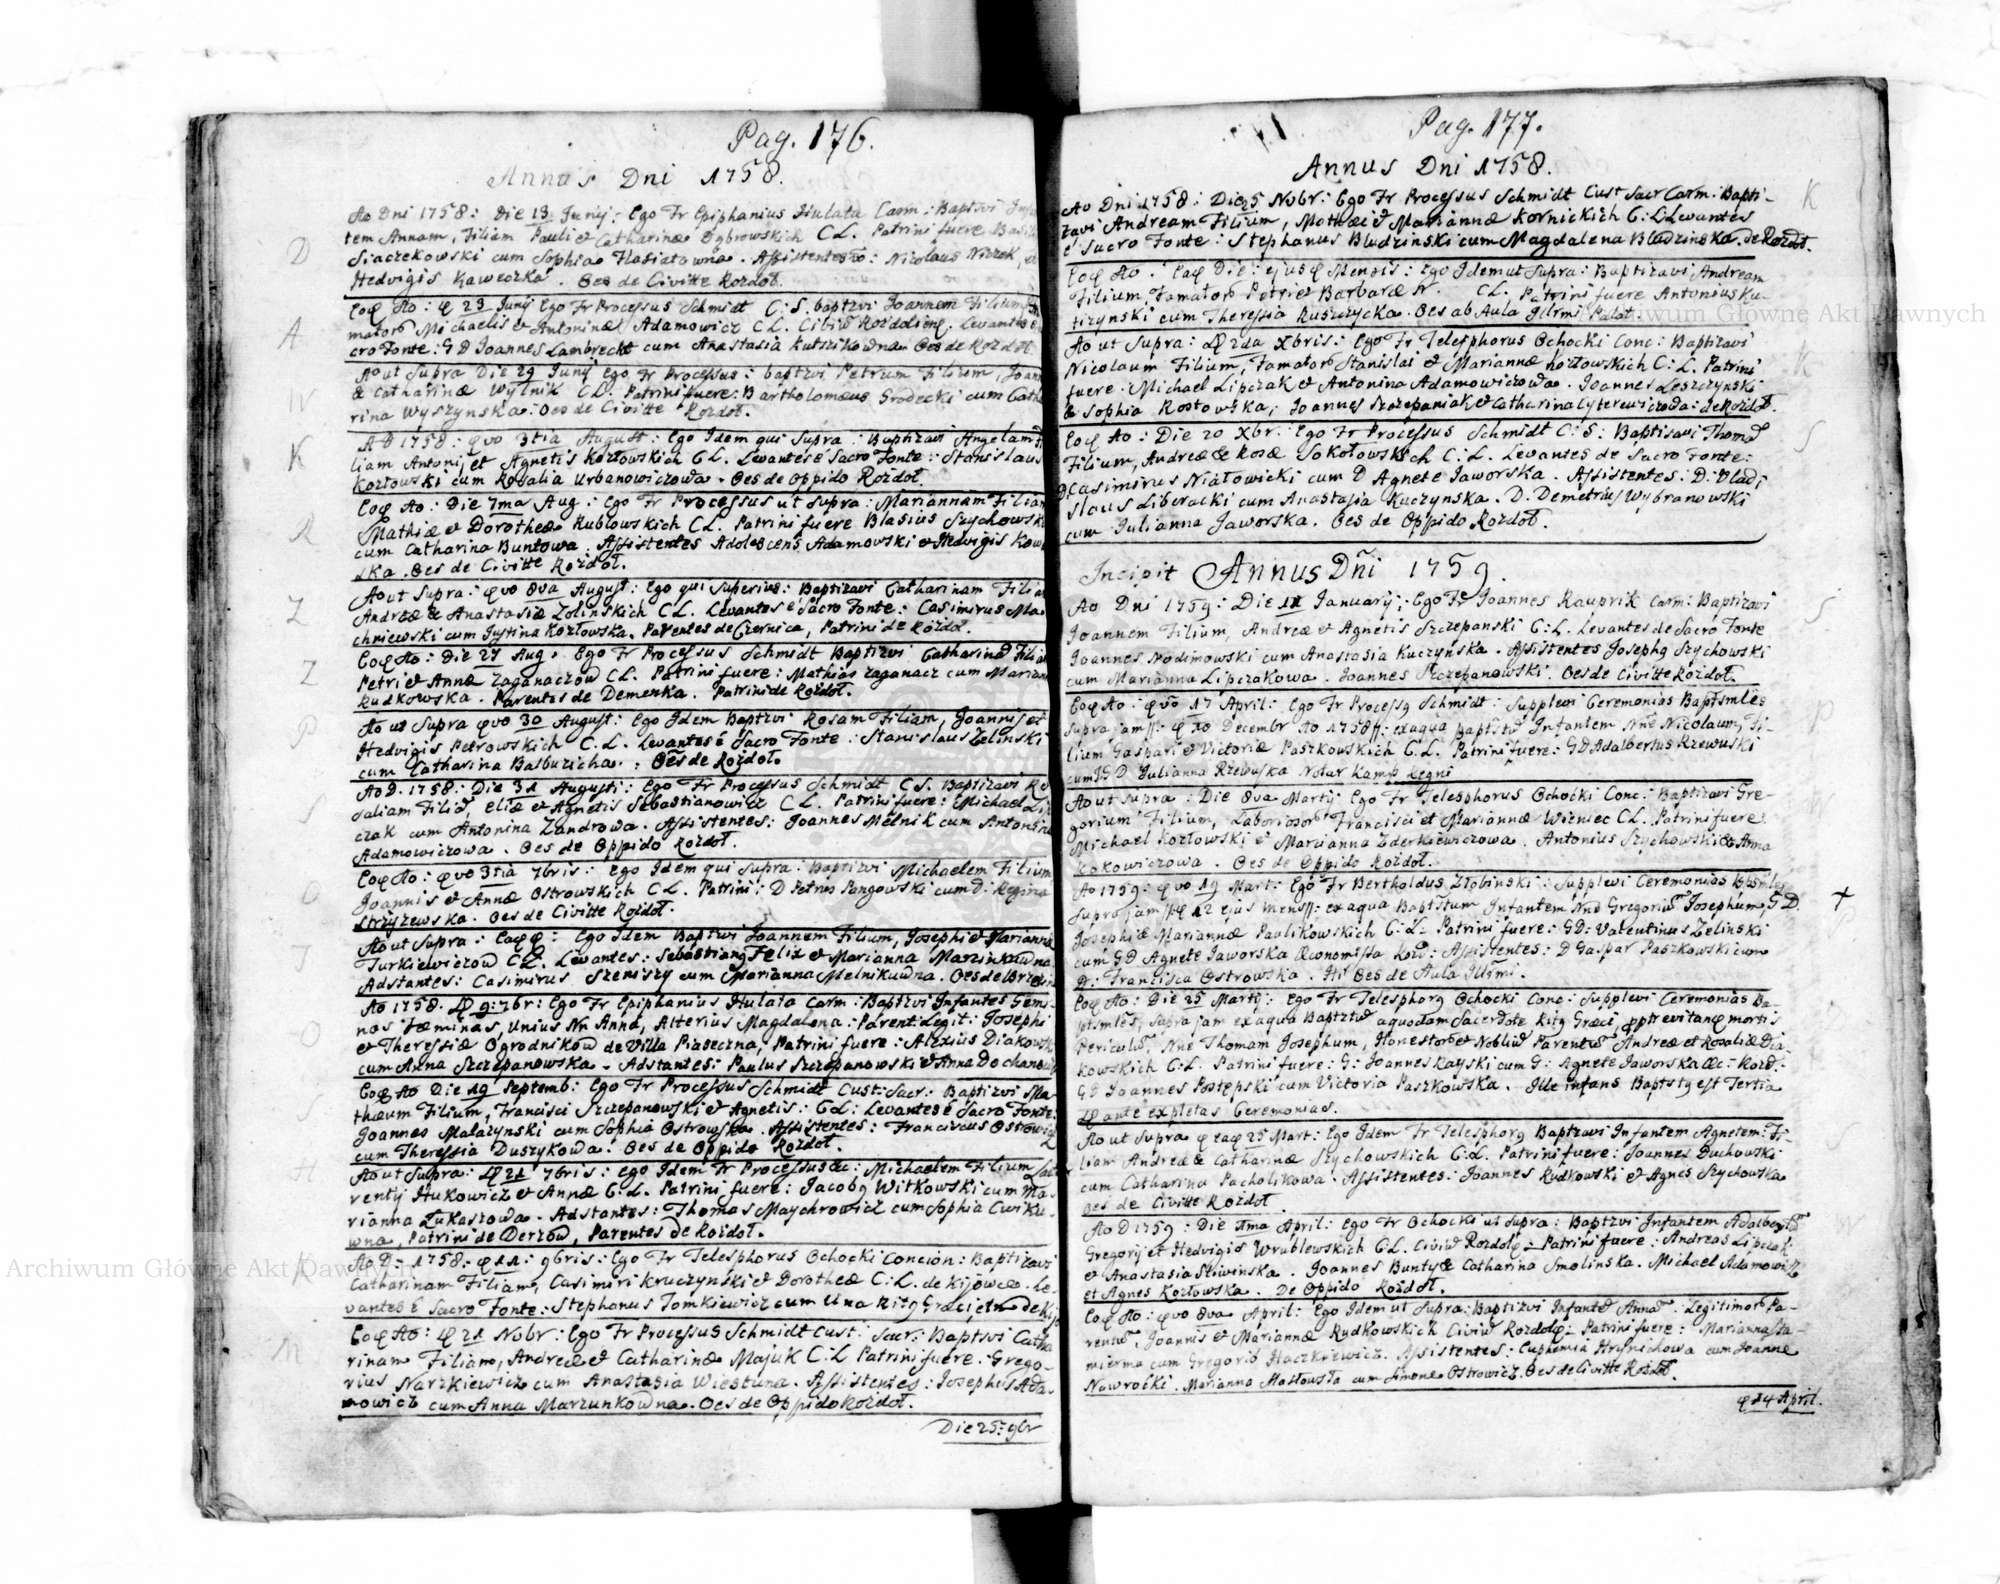 Pag. 176.
Annus Dni 1758.
Ao Dni 1758: Die 13 Junij: Ego Fr Epiphanius Hulata Carm: Baptizvi
tem Annam, Filiam Pauli et Catharinæ Dąbrowskich CL. Patrini fuere
Siaczekowski cum Sophia Hasiatowna. Assistentes: Nicolaus
D
Hedvigis Kaweczka. Oes de Civitte Rozdoł.
Eoq Ao: q 23 Junij Ego Fr Processus Schmidt C:S. baptzvi Joannem Filium
mator Michaelis et Antoninæ Adamowicz CL. Levantes
A
cro Fonte: GD Joannes Lambrecht cum Anastasia Oes de Rozdoł
Ao ut Supra Die 29 Junij Ego Fr Processus: baptzvi Petrum Filium,
& Catharinæ Wytnik CL. Patrini fuere: Bartholomæus Grodecki cum
W
rina Wyszynska: Oes de Civitte Rozdoł.
AD 1758: qvo 3tia August: Ego Idem qui Supra: Baptizavi Angelam
K
liam Antonij et Agnetis Kozłowskich CL. Levantes e Sacro Fonte: Stanislaus
Kozłowski cum Rosalia Urbanowiczowa. Oes de Oppido Rozdoł.
Eoq Ao: Die 7ma Aug: Ego Fr Processus ut Supra: Mariannam Filiam
R
Mathiæ et Dorotheæ Rublowskich CL. Patrini fuere Blasius Szychowski
cum Catharina Buntowa. Assistentes Adolescens Adamowski et Hedvigis
ska. Oes de Civitte Rozdoł.
Ao ut Supra: qvo 8va August: Ego qui Superius: Baptizavi Catharinam
Z
Andreæ & Anastasiæ Zolinskich CL. Levantes e Sacro Fonte: Casimirus Ma-
chniewski cum Justina Kozłowska. Parentes de Czernica, Patrini de Rozdoł.
Eoq Ao: Die 27 Aug. Ego Fr Processus Schmidt Baptizvi Catharina
Z
Petri et Annæ Zaganaczow CL. Patrini fuere: Mathias Zaganacz cum
Rudkowska. Parentes de Demenka. Patrini de Rozdoł.
P
Ao ut Supra qvo 30 August: Ego Idem Baptzvi Rosam Filiam, Joannis et
Hedvigis Petrowskich C.L. Levantes é Sacro Fonte: Stanislaus Zelinski
cum Catharina Balburicha. Oes de Rozdoł.
AoD. 1758: Die 31 Augusti: Ego Fr Processus Schmidt CS. Baptizavi Ro
S
saliam Filia Eliæ et Agnetis Sebastianowicz CL. Patrini fuere: Michael
czak cum Antonina Zandrowa. Assistentes: Joannes Melnik cum
Adamowiczowa. Oes de Oppido Rozdoł.
Eoq Ao: qvo 3tia 7bris: Ego Idem qui Supra: Baptizvi Michaelem Filium
O
Joannis et Annæ Ostrowskich CL. Patrini: D Petrus Pangowski cum D: Regina
Stryszewska. Oes de Civitte Rozdoł.
Ao ut Supra: Eoqq: Ego Idem Baptzvi Joannem Filium, Josephi et Mariannæ
T
Turkiewiczow CL. Levantes: Sebastiang Felix et Marianna
Adstantes: Casimirus cum Marianna Melnikuwna. Oes de
Ao 1758. 9: 7br: Ego Fr Epiphanius Hulata Carm: Baptzvi Infantes Gemi-
nas Fæminas, Unius Nn Anna, Alterius Magdalena: Parent: Legit: Josephi
O
et Theressiæ Ogrodnikow de Villa Piaseczna, Patrini fuere: Alexius
cum Anna Szczepanowska. Adstantes: Paulus Szczepanowski et Anna
Eoq Ao Die 19 Septemb: Ego Fr Processus Schmidt Cust: Sacr: Baptizvi Ma-
S
thæum Filium, Francisci Szczepanowski et Agnetis: CL: Levantes é Sacro Fonte:
Joannes Malazynski cum Sophia Ostrowska. Assistentes: Franciscus
cum Theressia Duszykowa. Oes de Oppido Rozdoł.
H
Ao ut Supra: 21 7bris: Ego Idem Fr Processus &c: Michaelem Filium
rentij Hukowicz et Annæ C.L. Patrini fuere: Jacobg Witkowski cum Ma-
rianna Łukaszowa. Adstantes: Thomas Maychrowicz cum Sophia Cwiku-
wna, Patrini de Derzow, Parentes de Rozdoł.
K
Ao D: 1758: q 11: 9bris: Ego Fr Telesphorus Ochocki Concion: Baptizavi
Catharinam Filiam, Casimiri Kruczynski et Dorotheæ C.L. de Kijowce. Le-
vantes é Sacro Fonte: Stephanus Tomkiewicz cum Una Ritg Græci
Eoq Ao: q 21 Nobr: Ego Fr Processus Schmidt Cust: Sacr: Baptzvi Catha
M
rinam Filiam, Andreæ et Catharinæ Majuk C:L Patrini fuere. Grego-
rius Narzkiewicz cum Anastasia Wiestuna. Assistentes: Josephus Ada-
mowicz cum Anna Marzunkowna. Oes de Oppido Rozdoł.
Die 25: 9br
Pag. 177.
Annus Dni 1758.
Ao Dni 1758: Die 25 Nobr: Ego Fr Processus Schmidt Cust Sacr Carm: Bapti-
K
zavi Andream Filium, Mathæi et Mariannæ Kornickich C:L Levantes
é Sacro Fonte: Stephanus Bludzinski cum Magdalena Bludzinska. de Rozdoł.
Eoq Ao: Eaq Die: ejusq Mensis: Ego Idem ut Supra: Baptizavi Andream
Filium, Famator Petri et Barbaræ N. CL. Patrini fuere Antonius Ku-
tizynski cum Theressia Ruszczycka. Oes ab Aula Illrmi Palat.
Ao ut Supra: 2da Xbris: Ego Fr Telesphorus Ochocki Conc: Baptizavi
K
Nicolaum Filium, Famator Stanislai et Mariannæ Kozłowskich C:L. Patrini
fuere. Michael Lipczak et Antonina Adamowiczowa. Joannes Leszczynski
& Sophia Rostowska; Joannes Szczepaniak et Catharina Cyterewiczowa: de Rozdoł.
Eoq Ao: Die 20 Xbr: Ego Fr Processus Schmidt C:S: Baptisavi Thoma
S
Filium, Andreæ & Rosæ Sokołowskich C.L. Levantes de Sacro Fonte:
D. Casimirus Niałowicki cum D Agnete Jaworska. Assistentes: D: Vladi
slaus Liberacki cum Anastasia Kuczynska. D. Demetrius Wybranowski
cum Julianna Jaworska. Oes de Oppido Rozdoł.
Incipit Annus Dni 1759.
Ao Dni 1759: Die 11 January: Ego Fr Joannes Kauprik Carm: Baptizavi
S
Joannem Filium, Andreæ et Agnetis Szczepanski C:L. Levantes de Sacro Fonte
Joannes Nodimowski cum Anastasia Kuczynska. Assistentes Josephg Szychowski
cum Marianna Lipczakowa. Joannes Szczepanowski. Oes de Civitte Rozdoł.
Eoq Ao: qvo 17 April: Ego Fr Processg Schmidt: Supplevi Ceremonias Baptsmles
P
Supra jam: q 10 Decembr Ao 1758: ex aqua Baptstu Infantem Nne Nicolaum, Fi-
lium Gaspari et Victoriæ Paszkowskich C.L. Patrini fuere: GD Adalbertus Rzewuski
cum GD Julianna Rzewuska Notar Kamp Regni
Ao ut Supra: Die 8va Martij Ego Fr Telesphorus Ochocki Conc: Baptizavi Gre-
W
gorium Filium, Laboriosor Francisci et Mariannæ Wieniec CL. Patrini fuere
Michael Kozłowski et Marianna Zderkiewiczowa. Antonius Szychowski & Anna
Kokowiczowa. Oes de Oppido Rozdoł.
Ao 1759: qvo 19 Mart: Ego Fr Bertholdus Złobinski: Supplevi Ceremonias Bpsmles
+
Supra jam: q 12 ejus mens: ex aqua Baptstum Infantem Nne Gregoriu Josephum, GD.
Josephi et Mariannæ Paulikowskich C:L: Patrini fuere: GD: Valentinus Zelinski
cum GD Agnete Jaworska Œconomissa Rozd: Assistentes: D Gaspar Paszkowski cum
D: Francisca Ostrowska. Hi Oes de Aula Illrmi.
Eoq Ao: Die 25 Martij: Ego Fr Telesphorg Ochocki Conc: Supplevi Ceremonias Ba-
ptsmles, Supra jam ex aqua Baptztu a quodam Sacerdote Ritg Græci, pptr evitanq mortis
Periculu, Nne Thomam Josephum, Honestor et Nobliu Parentu Andreæ et Rosaliæ Dia-
kowskich C.L. Patrini fuere: G: Joannes Rayski cum G: Agnete Jaworska &c: Rozd:
GD Joannes Postępski cum Victoria Paszkowska. Ille infans Baptstg est Tertia
ante expletas Ceremonias.
Ao ut Supra q eaq 25 Mart: Ego Idem Fr Telesphorg Baptzavi Infantem Agnetem: Fi-
S
liam Andreæ & Catharinæ Szychowskich C.L. Patrini fuere: Joannes Duchowski
cum Catharina Pacholikowa. Assistentes: Joannes Rudkowski et Agnes Szychowska
Oes de Civitte Rozdoł.
Ao D 1759: Die 1ma April: Ego Fr Ochocki ut Supra: Baptzvi Infantem Adalbertu
W
Gregorij et Hedvigis Wrublewskich C.L. Civiu Rozdolq: Patrini fuere: Andreas Lipczak
et Anastasia Sliwinska. Joannes Bunty & Catharina Smolinska. Michael Adamowicz
et Agnes Kozłowska. De Oppido Rozdoł.
Eoq Ao: qvo 8va April: Ego Idem ut Supra: Baptizvi Infante Anna. Legitimor Pa-
rentu, Joannis et Mariannæ Rudkowskich Civiu Rozdolq: Patrini fuere: Marianna Sa-
mierma cum Gregorio Haczkiewicz. Assistentes: Euphemia Hrynichowa cum Joanne
Nawrocki. Marianna Masłowska cum Simone Ostrowicz. Oes de Civitte Rozdoł.
q 14 April.
Archiwum Główne Akt Dawnych
Archiwum Główne Akt Dawnych